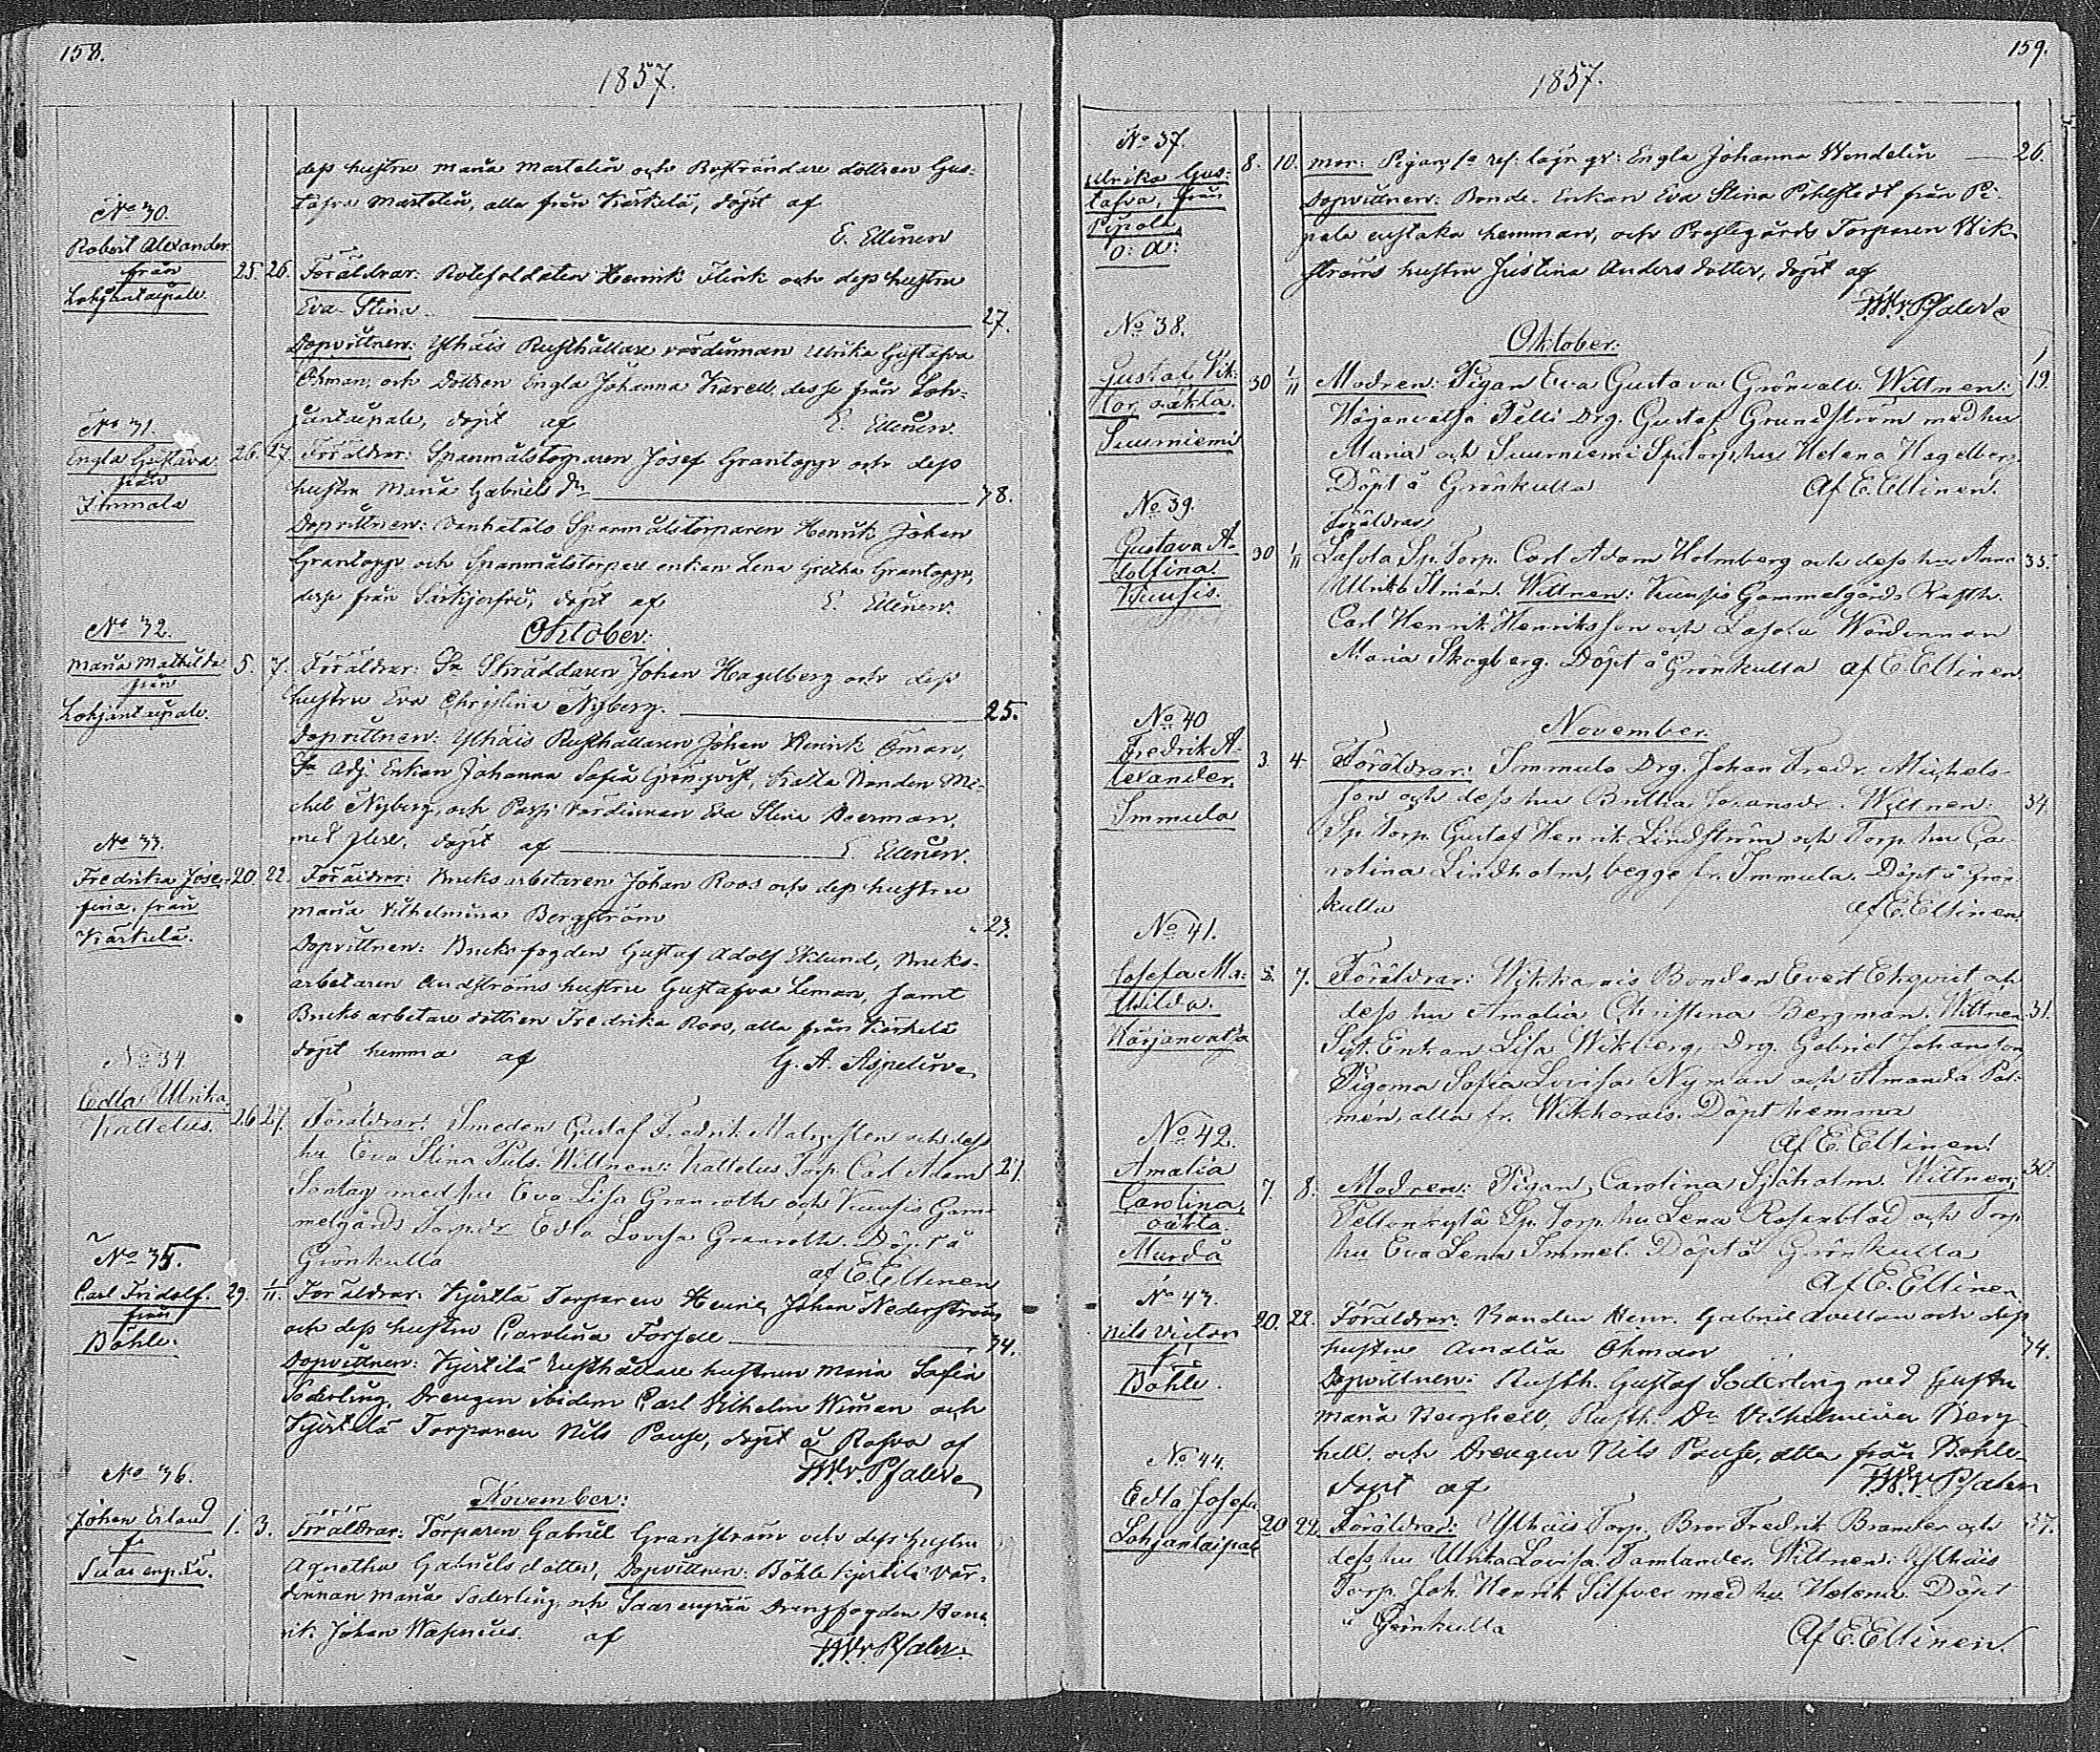 158.
1857.
dess hustru Maria Martelin och Rusthåndare dottren Gus-
tafva Martelin, alla från Kärkelä, döpt af
E. Ellinen
No 30.
Robert Alexander
från
Lohjantaipale
25. 26. Föräldrar: Rotesoldaten Henrik Flink och dess hustru
Eva Stina 27.
Dopvittnen: Ylhäis Rusthållare värdinnan Ulrika Gustafva
Öhman, och dottren Engla Johanna Karell, desse från Loh-
jantaipale, döpt af E. Ellinen.
No 31.
Engla Gustava
från
Immola
26. 27. Föräldrar: Spanmålstorparen Josef Grantopp och dess
hustru Maria Gabriels dr 38.
Dopvittnen: Vanhatalo Spanmålstorparen Henrik Johan
Grantopp och Spanmålstorpare enkan Lena Gretha Grantopp,
desse från Särkjerfvi, döpt af E. Ellinen.
Oktober:
No 32.
Maria Mathilda
från
Lohjantaipale.
5. 7. Föräldrar: Sn Skräddaren Johan Hagelberg och dess
hustru Eva Christina Nyberg. 25.
Dopvittnen: Ylhäis Rusthållaren Johan Henrik Öman,
Sn Adj. Enkan Johanna Sofia Grönqvist, Bonden Mi-
chel Nyberg, och värdinnan Eva Stina
med flere, döpt af E. Ellinen.
No 33.
Fredrika Jose-
fina, från
Kärkelä.
20. 22. Föräldrar: Bruksarbetaren Johan Roos och dess hustru
Maria Vilhelmina Bergström 23.
Dopvittnen: Bruksfogden Gustaf Adolf Eklund, Bruks-
arbetaren Andströms hustru Gustafva Leman, samt
Bruks arbetare dottren Fredrika Roos, alla från Kärkelä
döpt hemma af G. A. Aspelin
No 34.
Edla Ulrika
Kattelus.
26 27. Föräldrar: Smeden Gustaf Fredrik Malmsten och dess
hu Eva Stina Puls. Wittnen: Kattelus Torp. Carl Adam 21.
Sontag med hu Eva Lisa Granroth och Kuusis Gam-
melgårds Torp.dr Edla Lovisa Granroth. Döpt å
Grönkulla af E. Ellinen
No 35.
Carl Fridolf.
från
Böhle.
29. 1/11. Föräldrar: Kjirkilä Torparen Henric Johan Nederström
och dess hustru Carolina Forsell 34.
Dopvittnen: Kjirkilä Rusthållare hustrun Maria Sofia
Söderling, Drengen ibidem Carl Vilhelm Wiman och
Kjirkilä Torparen Nils Pause, döpt å Rasvo af
F.W.v. Pfaler
November:
No 36.
Johan Erland
f.
Saarenpää.
1. 3. Föräldrar: Torparen Gabriel Granström och dess hustru
Agnetha Gabrielsdotter, Dopvittnen: Böhle Kjirkilä vär-
dinnan Maria Söderling och Saarenpää Drengfogden Hen-
rik Johan Wasenius. af F.W.v. Pfaler.
159.
1857.
No 37.
Ulrika Gus-
tafva, från
Pipola
o: a:
8. 10. mor: Pigan, Engla Johanna Wendelin 26.
Dopvittnen: Bonde Enkan Eva Stina Pihlstedt från Pi-
pola Eustaka hemman, och Prestegårds Torparen Wik-
ströms hustru Justina Anders dotter, döpt af
F.W.v. Pfaler
Oktober:
No 38.
Gustaf Vik-
tor oäkta.
Suurniemi
30 1/11 Modren: Pigan Eva Gustava Grönvall. Wittnen: 19.
Härjänvatsa Pelli Drg. Gustaf Grundström med hu
Maria och Suurniemi Sp.torp.hu Helena Hagelberg.
Döpt å Grönkulla Af E. Ellinen.
No 39.
Gustava A-
dolfina.
Kuusis.
Föräldrar
30 1/11 Lasola Sp. Torp. Carl Adam Holmberg och dess hu Anna 35.
Ulrika Limón. Wittnen: Kuusis Gammelgårds Rusth.
Carl Henrik Henriksson och Lasola Wärdinnan
Maria Skogberg. Döpt å Grönkulla af E. Ellinen
November.
No 40
Fredrik A-
lexander.
Immula
3. 4 Föräldrar: Immula Drg. Johan Fredr. Michels-
son och dess hu Britha Johansdr. Wittnen: 34.
Sp. Torp. Gustaf Henrik Lindström och Torp.hu Ca-
rolina Lindholm, begge fr. Immula. Döpt å Grön-
kulla af E. Ellinen
No 41.
Josefa Ma-
thilda.
Härjänvatsa
5. 7. Föräldrar: Wikkarais Bonden Evert Ekqvist och
dess hu Amalia Christina Bergman. Wittnen 31.
Syt. Enkan Lisa Wikberg, Drg. Gabriel Johansson,
Pigorna Sofia Lovisa Nyman och Amanda Pal-
mén, alla fr. Wikkarais. Döpt hemma
Af E. Ellinen.
No 42.
Amalia
Carolina,
oäkta.
Murdå
7. 8. Modren: Pigan, Carolina Sjöholm. Wittnen: 30.
Peltonkylä Sp. Torp. hu Lena Rosenblad och Torp.
hu Eva Lena Immel. Döpt å Grönkulla
Af E. Ellinen.
No 43.
Nils Victor
f.
Böhle.
20. 22. Föräldrar: Bonden Henr. Gabriel Avellan och dess
hustru Amalia Öhman 34.
Dopvittnen: Rusth. Gustaf Söderling med hustru
Maria Berghell, Rusth. Dr Vilhelmina Berg-
hell, och Drengen Nils Pause, alla från Böhle
döpt af F.W.v. Pfaler
No 44.
Edla Josefa
Lohjantaipale
20 22. Föräldrar: Ylhäis Torp. Bror Fredrik Brander och 37.
dess hu Ulrika Lovisa Tamlander. Wittnen: Ylhäis
Torp. Joh. Henrik Silfver med hu Helena. Döpt
å Grönkulla Af E. Ellinen.